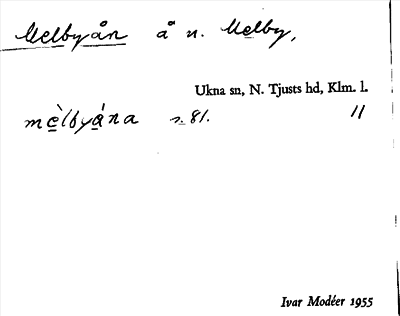 Melbyån å n. Melby.
Ukna sn, N. Tjusts hd, Klm. l.
mèlbyána s. 81. 11
Ivar Modéer 1955